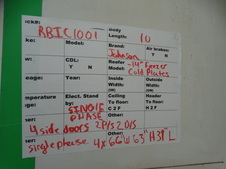 RBIC1001
Body
Length: 10
Model:
Brand:
Johnson
Air brakes:
Y N
CDL:
Y N
Reefer
Model:
-14° Freezer
Cold Plates
Year:
Inside
Width:
Outside
Width:
Elect. Stand
by:
SINGLE
PHASE
Ceiling
To floor:
C 2 F
Header
To floor:
H 2 F
Other:
4 side doors 2P/S 2D/S
Other:
single phase 4x 66"W 63"H 38" L